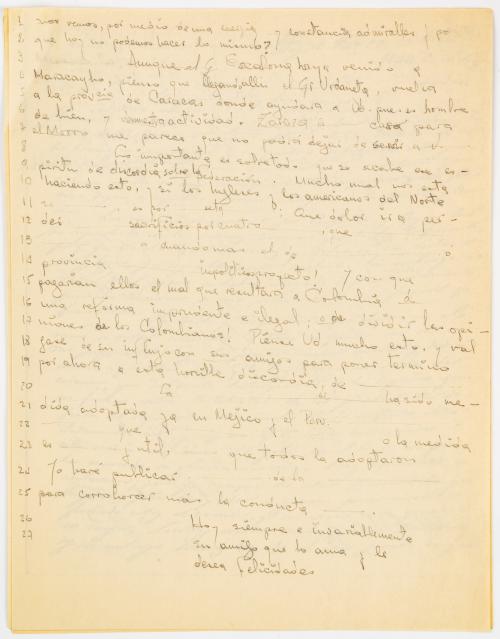 1 nos vemos, por medio de una energia y constancia admirables y po
2 que hoy no podemos hacer lo mismo?
3 Aunque el G. Escalona haya venido a
4 Maracaybo, pienso que llegando allí el Gr Urdaneta, vuelva
5 a la provcia de Caracas donde ayudara a Vd. pues es hombre
6 de bien, y actividad. para
7 el Morro me parece que no podrá dejar de servir a
8 Lo importante es sobre todo que se acabe ese es-
9 piritu de discordia sobre federación. Mucho mal nos esta
10 haciendo esto, y si los Ingleses y los americanos del Norte
11 es por esta ¡Que dolor ira per-
12 dei sacrificios por cuatro, que
13 a mandomas el de o
14 provincia impolitico proyecto! Y con que
15 pagarian ellos el mal que resultara a Colombia de
16 una reforma imprudente e ilegal; o de dividir las opi-
17 niones de los Colombianos! Piense Vd mucho esto, y val
18 gase de su influjo con sus amigos para poner termino
19 por ahora a esta horrible discordia, de
20 La el ha sido me-
21 dida adoptada ya en Mejico y el Peru.
22 que o la medida
23 es y util, que todos la adoptaron
24 Yo haré publicar de la
25 para corroborar más la conducta
26 Hoy siempre e invariablemente
27 su amigo que lo ama y le
desea felicidades